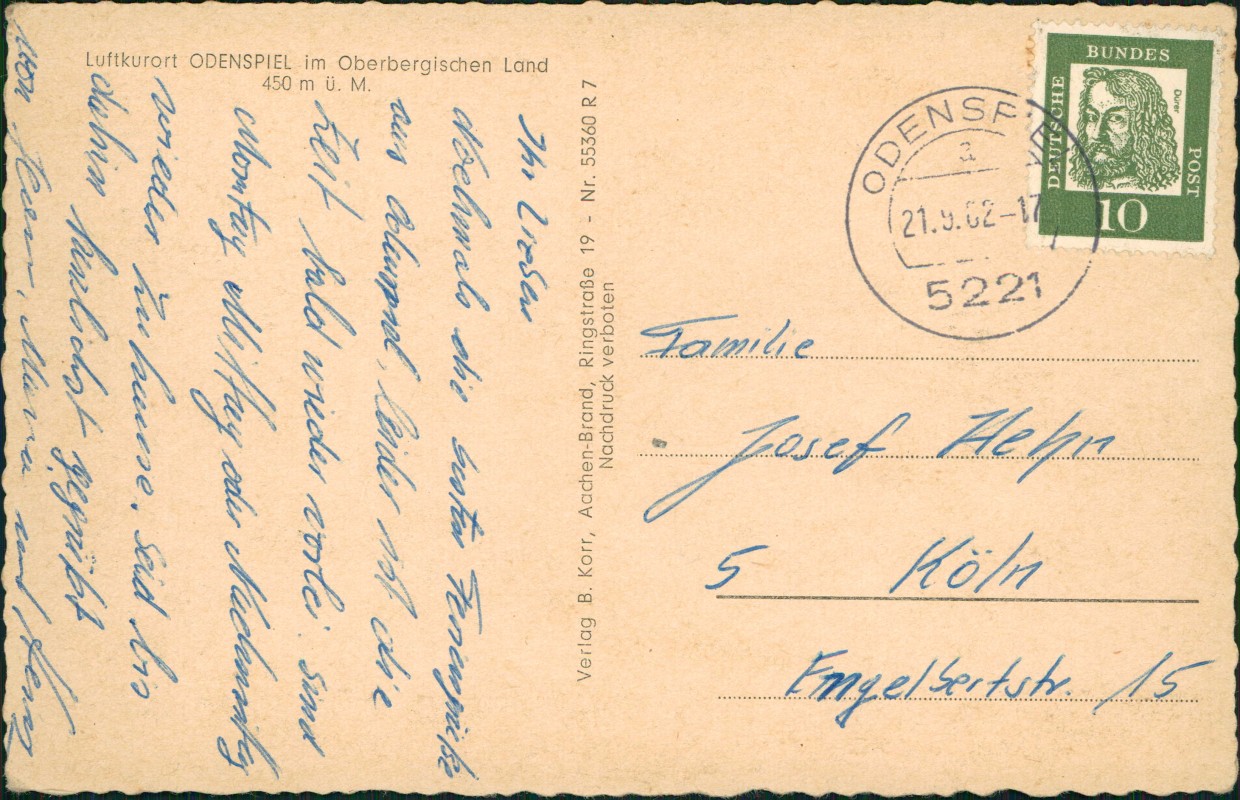 Luftkurort ODENSPIEL im Oberbergischen Land
450 m ü. M.
Ihr Lieben
Nochmals die besten Feriengrüße
aus Odenspiel, leider ist die
Zeit bald wieder vorbei. Sind
Montag Mittag oder Nachmittag
wieder zu hause. Seid bis
dahin herzlichst gegrüßt
von Maria und
Verlag B. Korr, Aachen-Brand, Ringstraße 19 - Nr. 55360 R 7
Nachdruck verboten
ODENSPIEL
a
21.9.62-17
5221
DEUTSCHE BUNDES POST
Dürer
10
Familie
Josef Hehn
5 Köln
Engelbertstr. 15